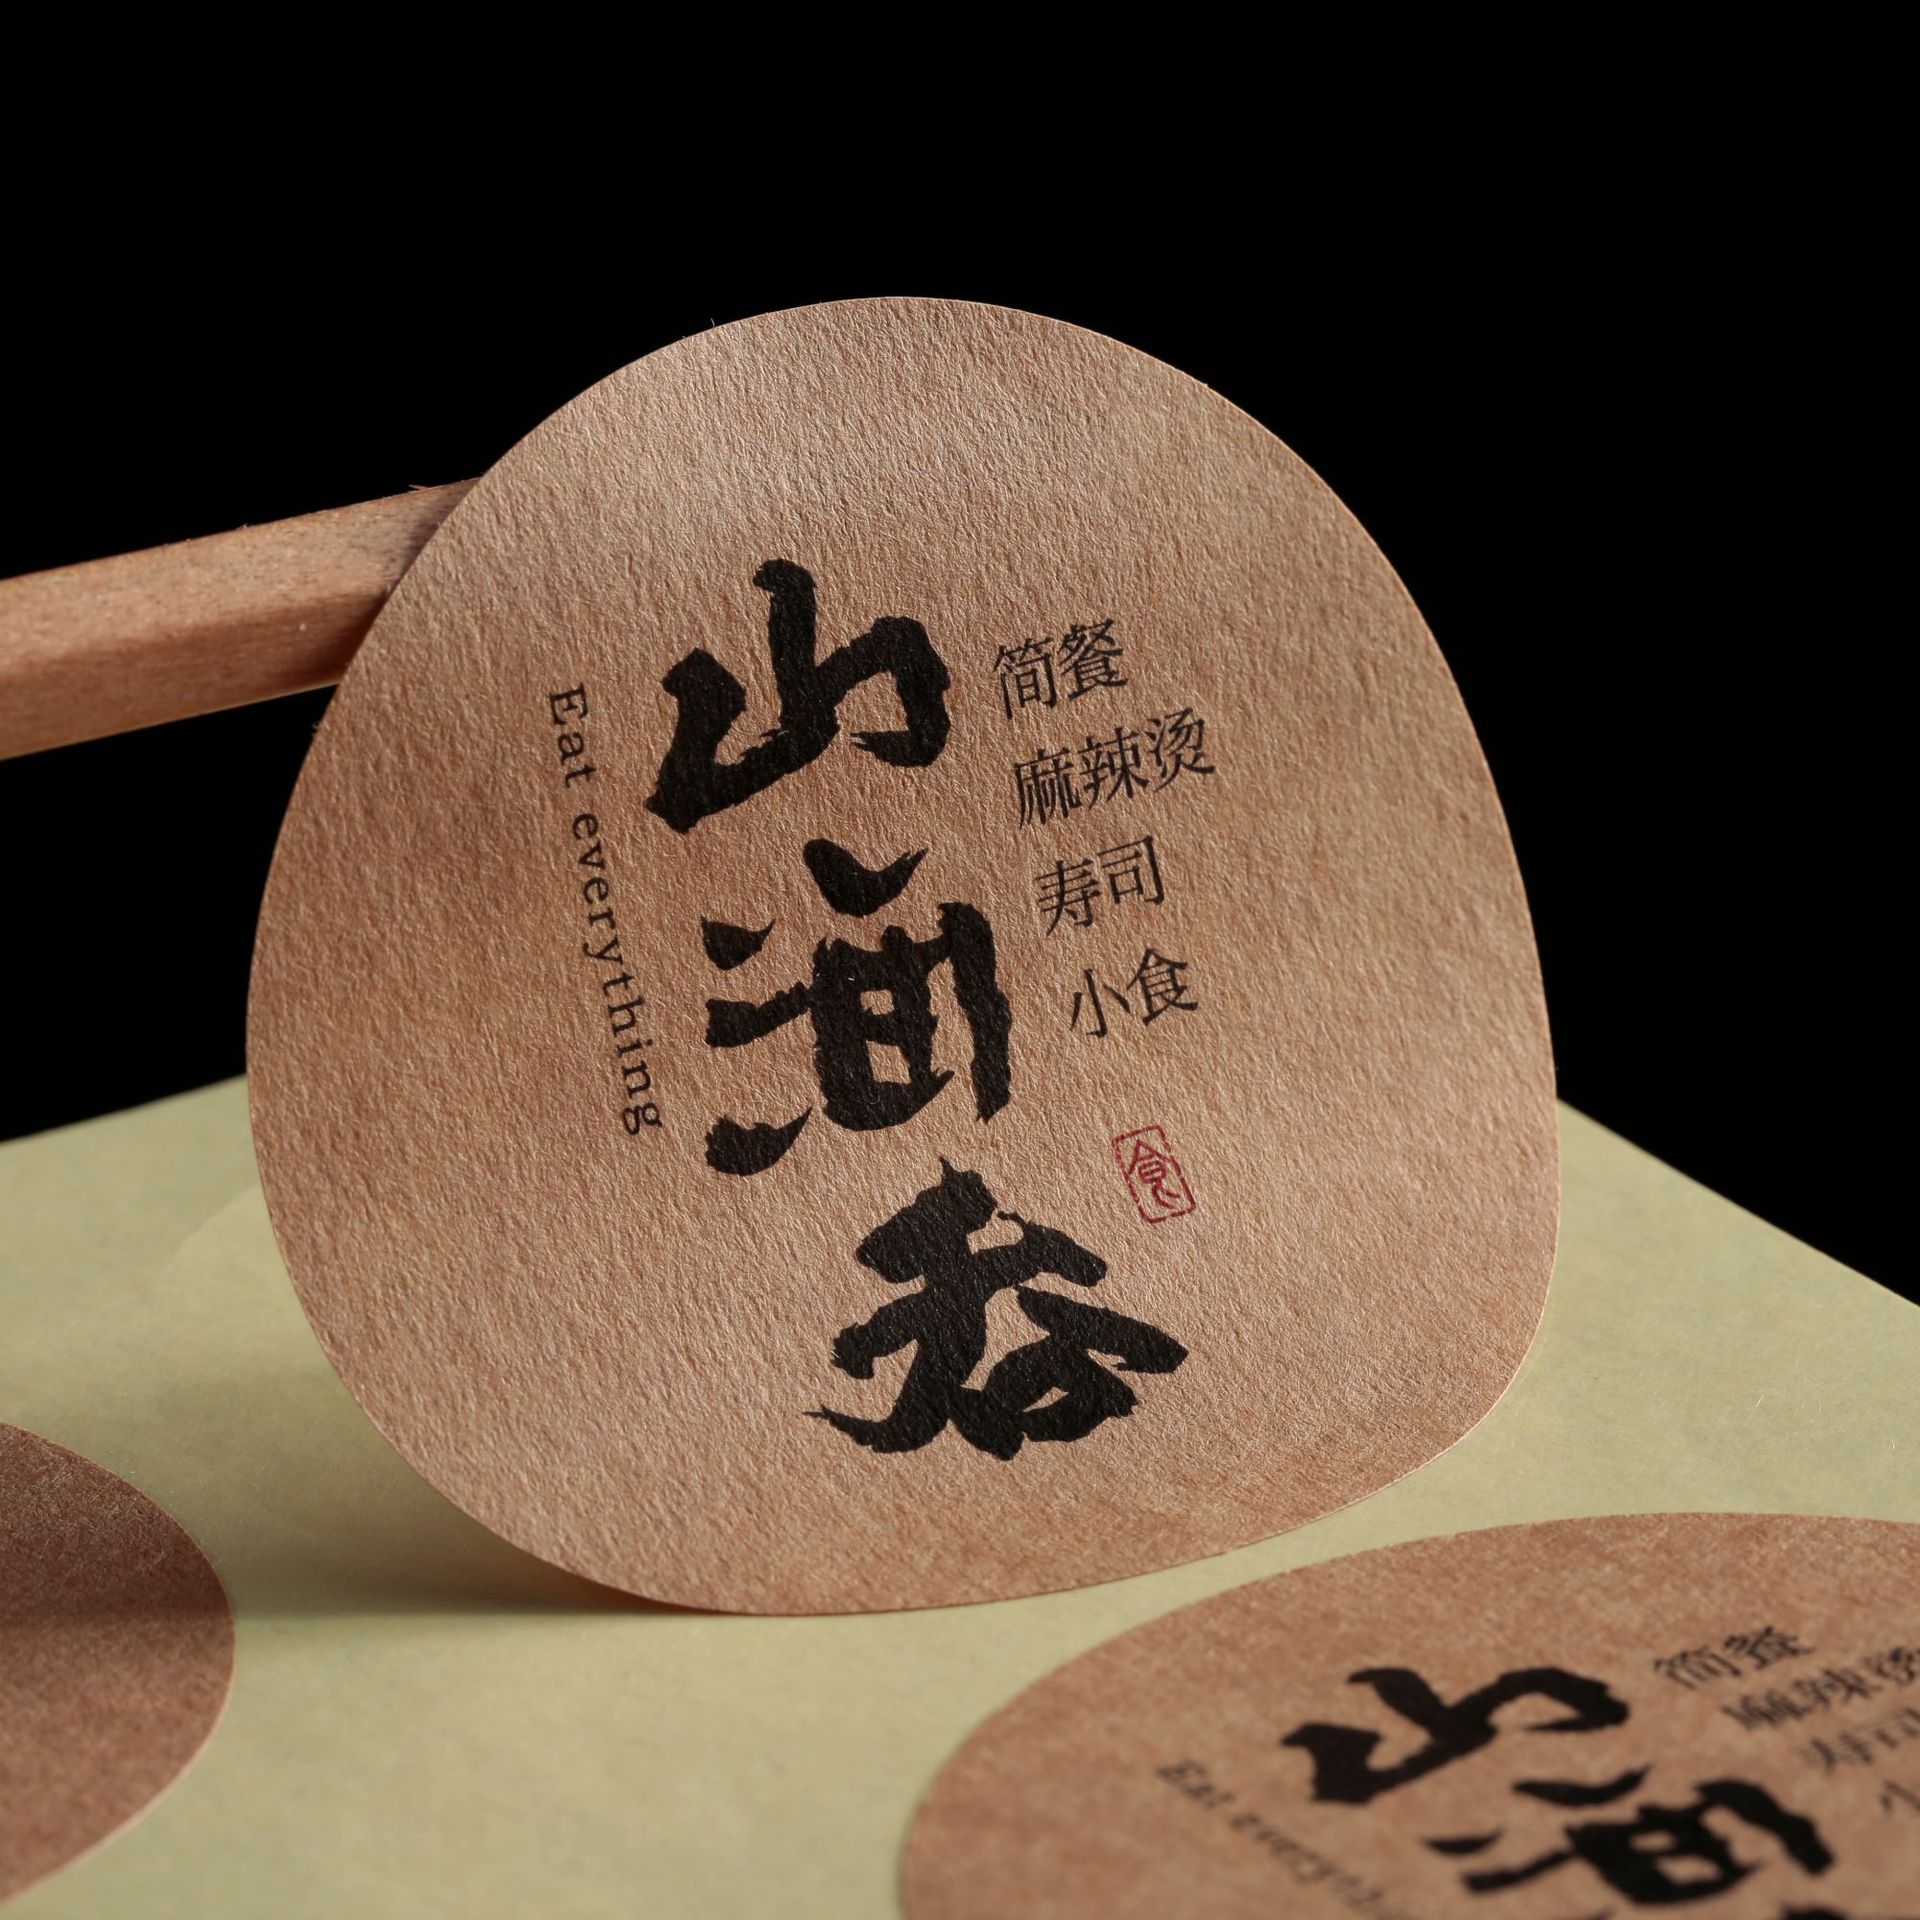 山海吞
Eat everything
简餐
麻辣烫
寿司
小食
食
山海
Eat everything
简餐
麻辣烫
寿司
小